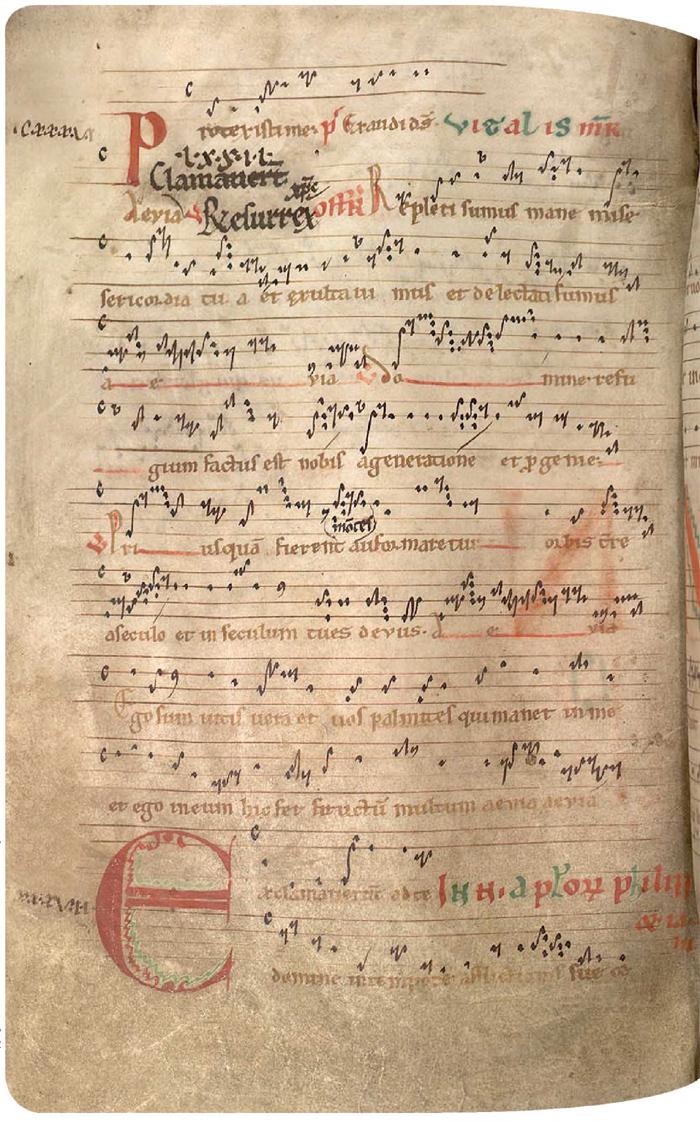 Protexisti me. ps Exaudi ds. Vitalis mr
lxxii
Clamaverunt
Aevia Resurrex xpc offm Repleti sumus mane mise
sericordia tu a et exultavi mus et delectati sumus
a e via do mine refu
gium factus est nobis a generatione et p genie
Pri usquā fierent aut formaretur orbis tre
montes
a seculo et in seculum tu es deus. a e via
Ego sum vitis vera et vos palmites qui manet in me
et ego in eum hic fert fructū multum aevia aevia
Exclamaverunt ad te In N. aplorum philipi
domine in tempore afflictionis sue